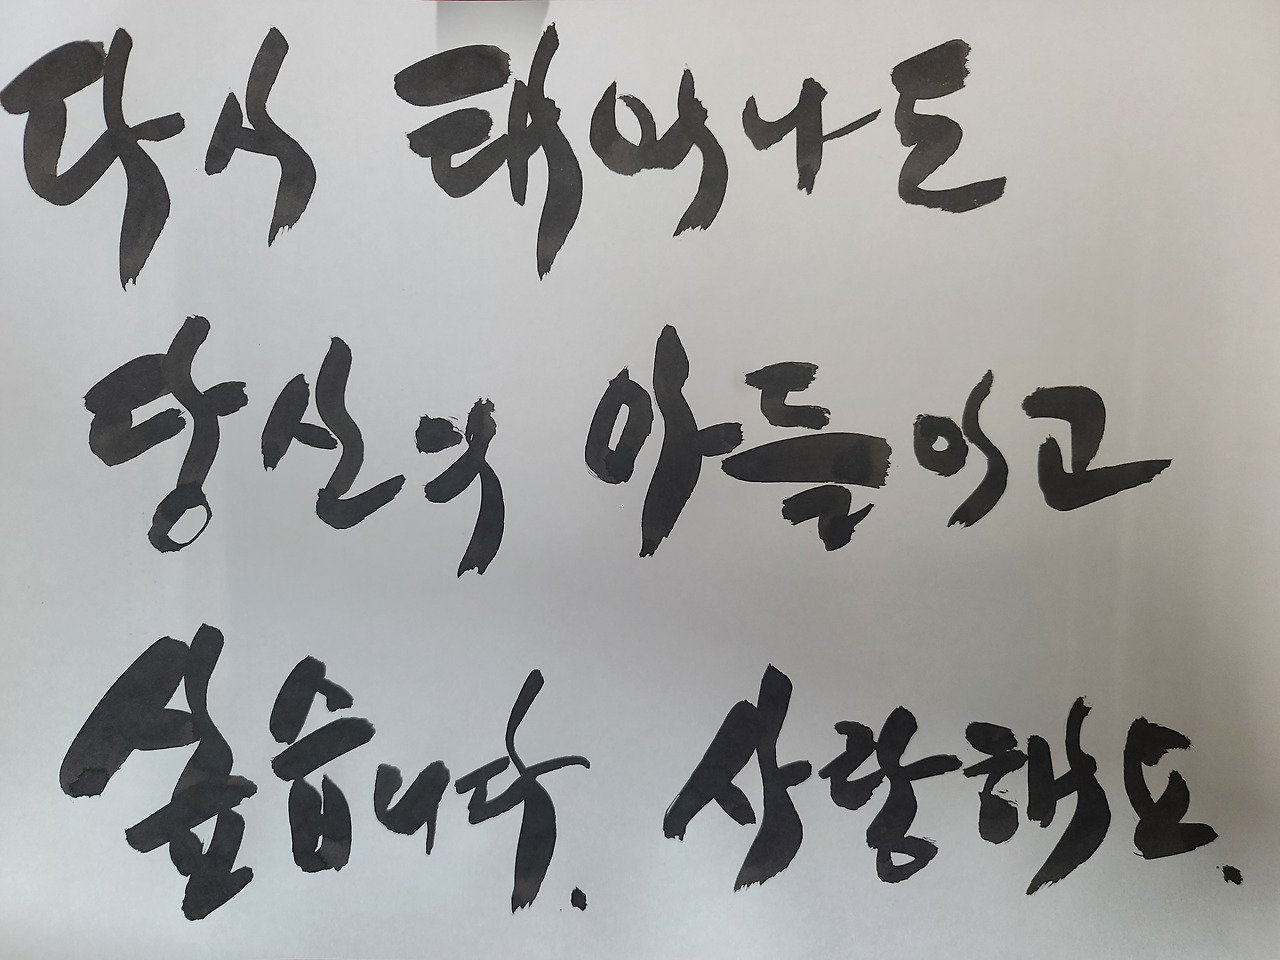 다시 태어나도
당신의 아들이고
싶습니다. 사랑해요.